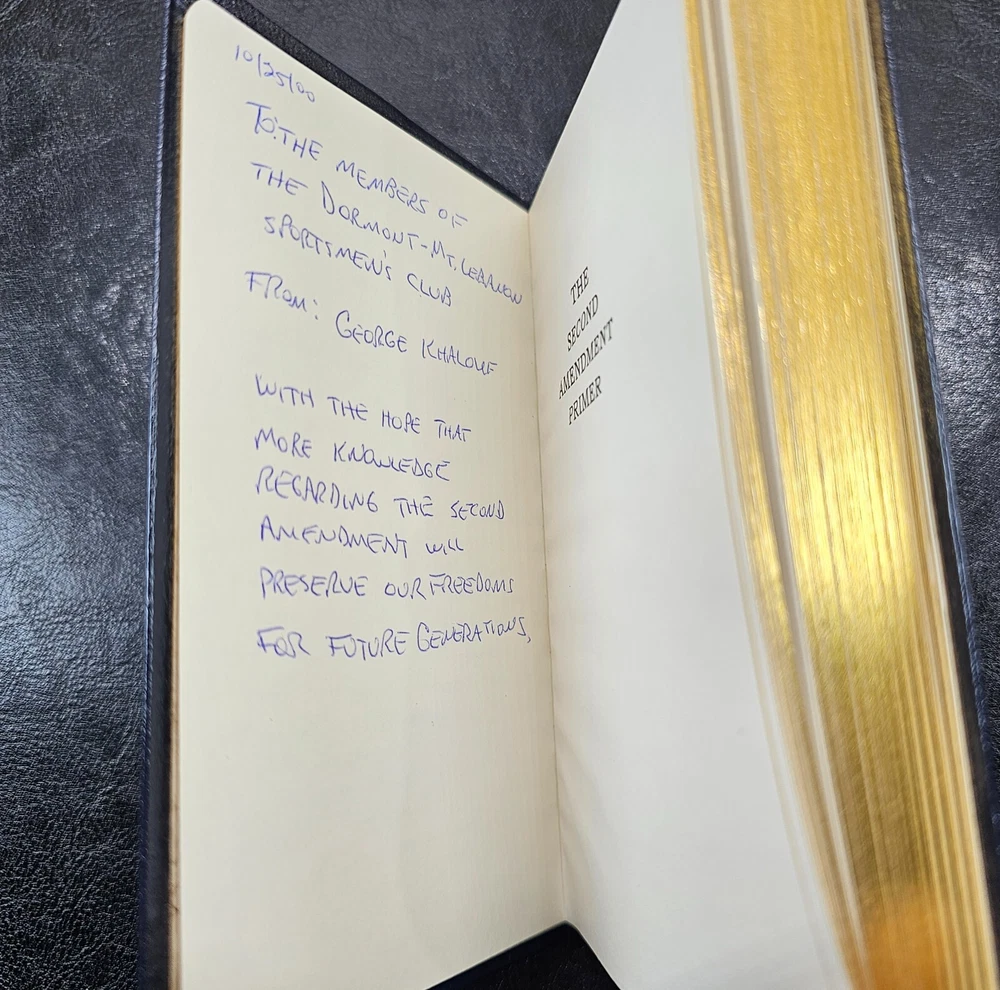 10/25/00
TO: THE MEMBERS OF
THE DORMONT-MT. LEBANON
SPORTSMEN'S CLUB
FROM: GEORGE KHALOUF
WITH THE HOPE THAT
MORE KNOWLEDGE
REGARDING THE SECOND
AMENDMENT WILL
PRESERVE OUR FREEDOMS
FOR FUTURE GENERATIONS,
THE
SECOND
AMENDMENT
PRIMER